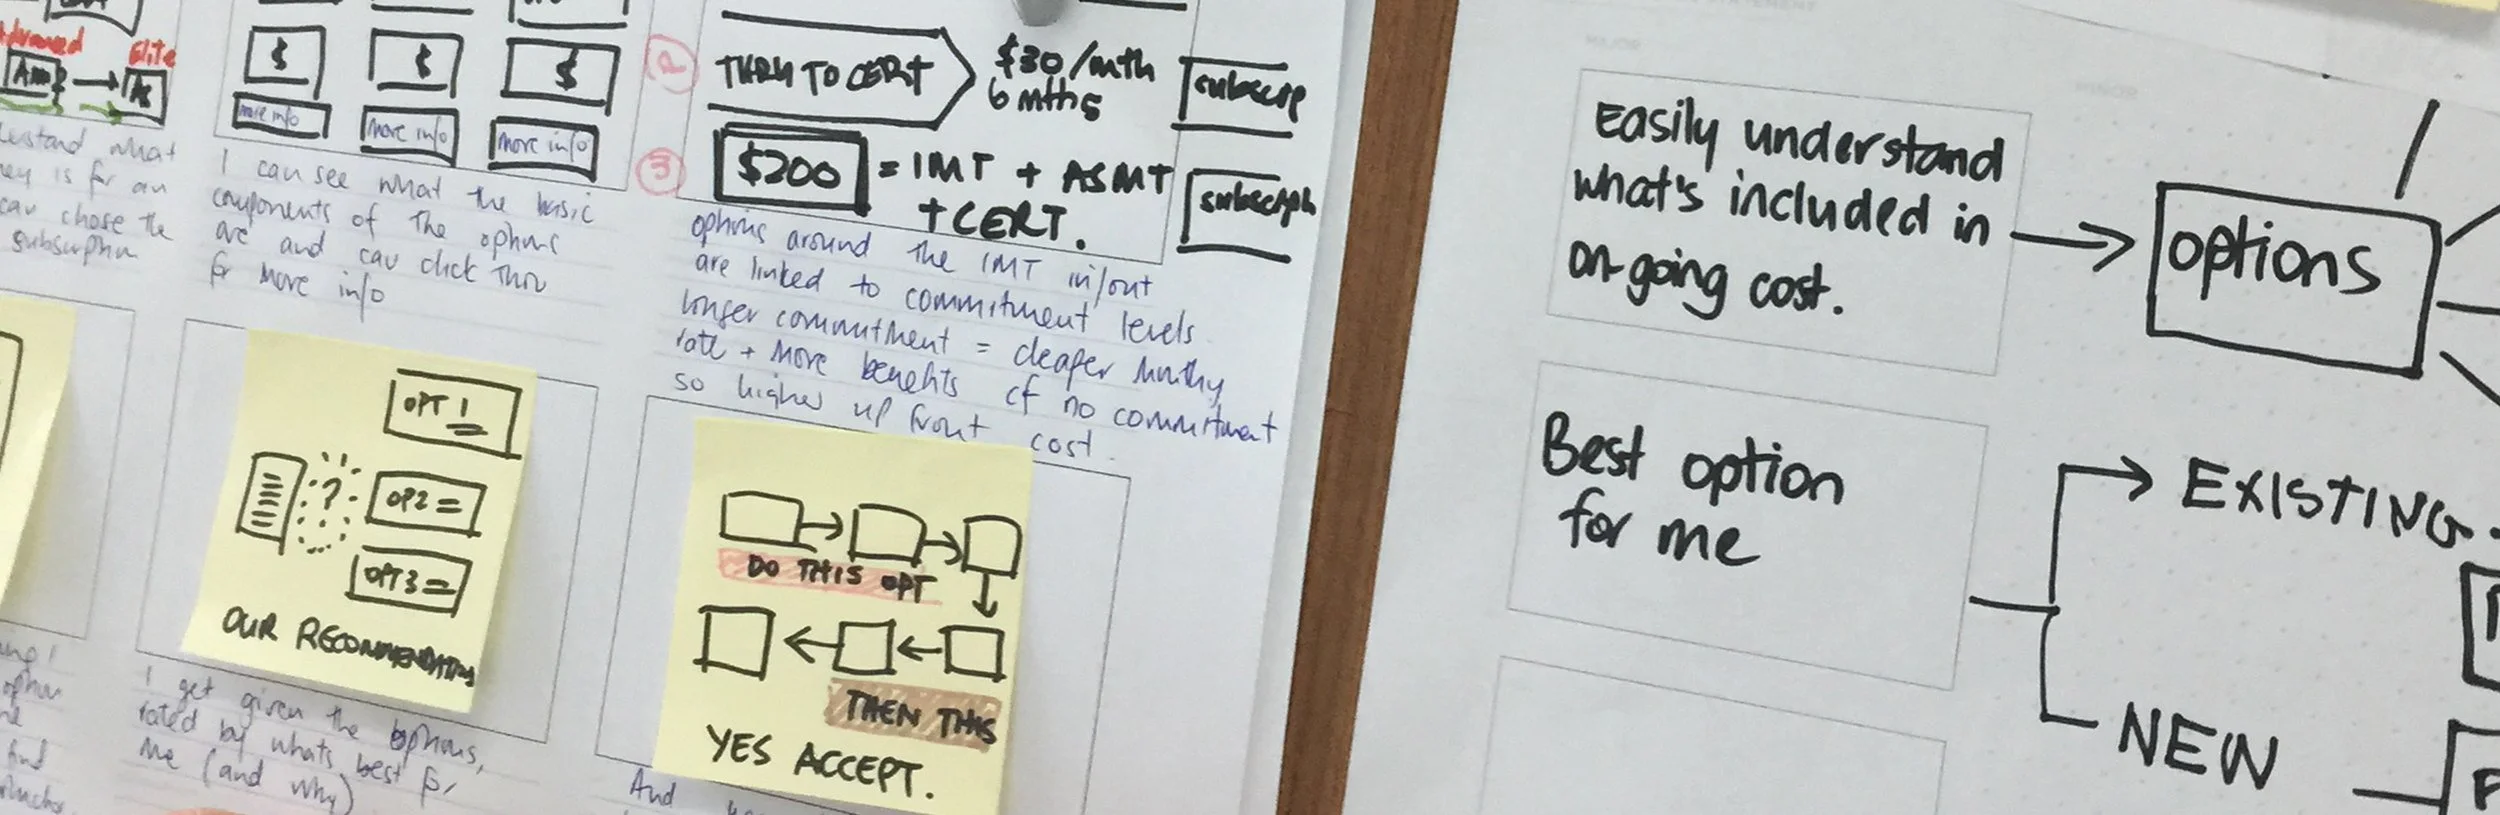 Advanced
Elite
As
$
$
$
more info
More info
More info
what
is for an
can chose the
I can see what the basic
components of the options
are and can click thru
for more info
2
THRU TO CERT
$30/mth
6 mths
subscrip
3
$200
= IMT + ASMT
+ CERT.
subscriptn
options around the IMT in/out
are linked to commitment levels
longer commitment = cheaper monthly
rate + more benefits cf no commitment
so higher up front cost.
OPT 1
?
OP2
OPT3
OUR RECOMMENDATION
I get given the options,
rated by whats best for
me (and why)
DO THIS OPT
THEN THIS
YES ACCEPT.
And
MAJOR
MINOR
Easily understand
what's included in
on-going cost.
options
Best option
for me
EXISTING
NEW